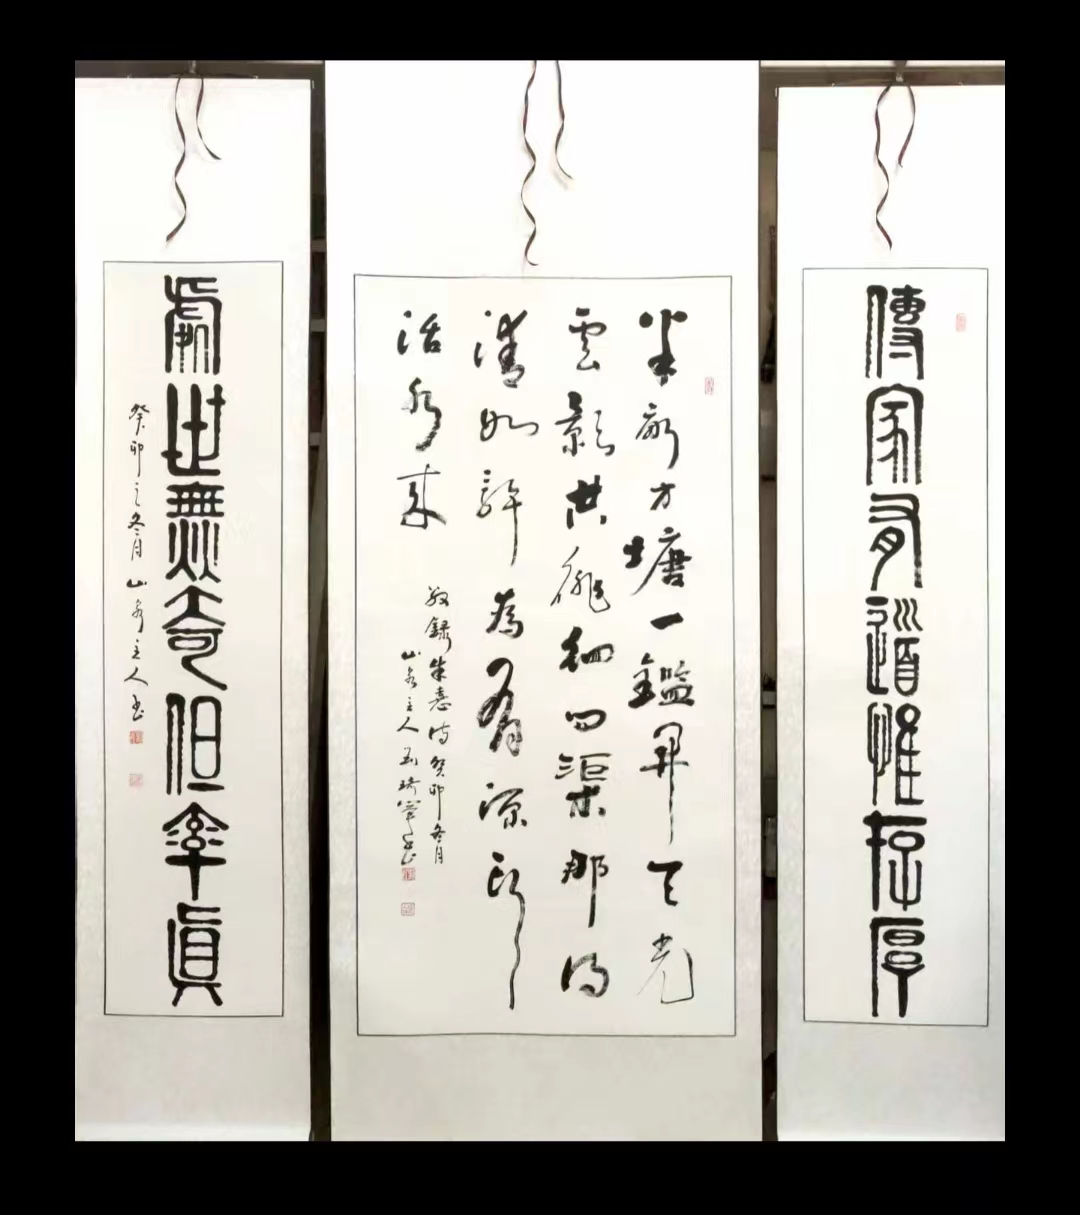 傳家有道惟存厚
半畝方塘一鑑開天光
雲影共徘徊問渠那得
清如許為有源頭
活水來
敬錄朱熹詩癸卯冬月
山泉主人
處世無奇但率真
癸卯之冬月山泉主人書